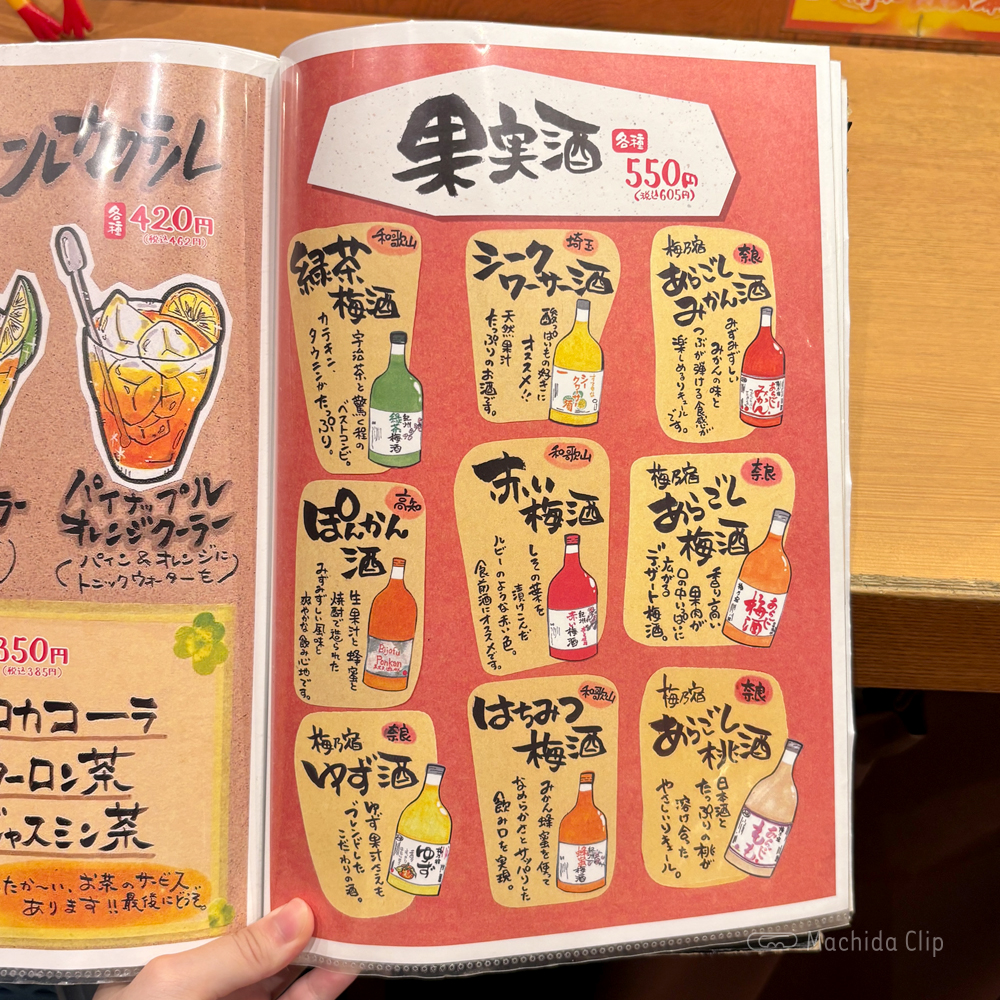 ンルカクテル
各種 420円
(税込462円)
パイナップル
オレンジクーラー
(パイン&オレンジに
トニックウォーターを)
350円
(税込385円)
コカコーラ
ウーロン茶
ジャスミン茶
たか〜い、お茶のサービス
あります!!最後にどうぞ。
果実酒
各種
550円
(税込605円)
緑茶
梅酒
和歌山
宇治茶と驚く程の
ベストコンビ。
カテキン
タウニンがたっぷり。
緑茶梅酒
シークワーサー酒
埼玉
酸っぱいもの好きに
オススメ!!
天然果汁
たっぷりのお酒です。
梅乃宿
奈良
あらごし
みかん酒
みずみずしい
みかんの味と
つぶが弾ける食感が
楽しめるリキュールです。
あらごし
みかん
ぽんかん
酒
高知
生果汁と蜂蜜と
焼酎で造られた
みずみずしい風味と
爽やかな飲み心地です。
Ponkan
赤い
梅酒
和歌山
しその葉を
漬けこんだ
ルビーのような赤い色。
食前酒にオススメです。
赤い梅酒
梅乃宿
奈良
あらごし
梅酒
香り高い
果肉が
口の中いっぱいに
広がる
デザート梅酒。
あらごし
梅酒
梅乃宿
奈良
ゆず酒
ゆず果汁ベースも
ブレンドした
こだわりの酒。
ゆず
はちみつ
梅酒
和歌山
みかん蜂蜜を使って
なめらかさとサッパリした
飲み口を実現。
蜂蜜梅酒
梅乃宿
奈良
あらごし
桃酒
日本酒と
たっぷりの桃が
溶け合った
やさしいリキュール。
あらごし
もも
Machida Clip